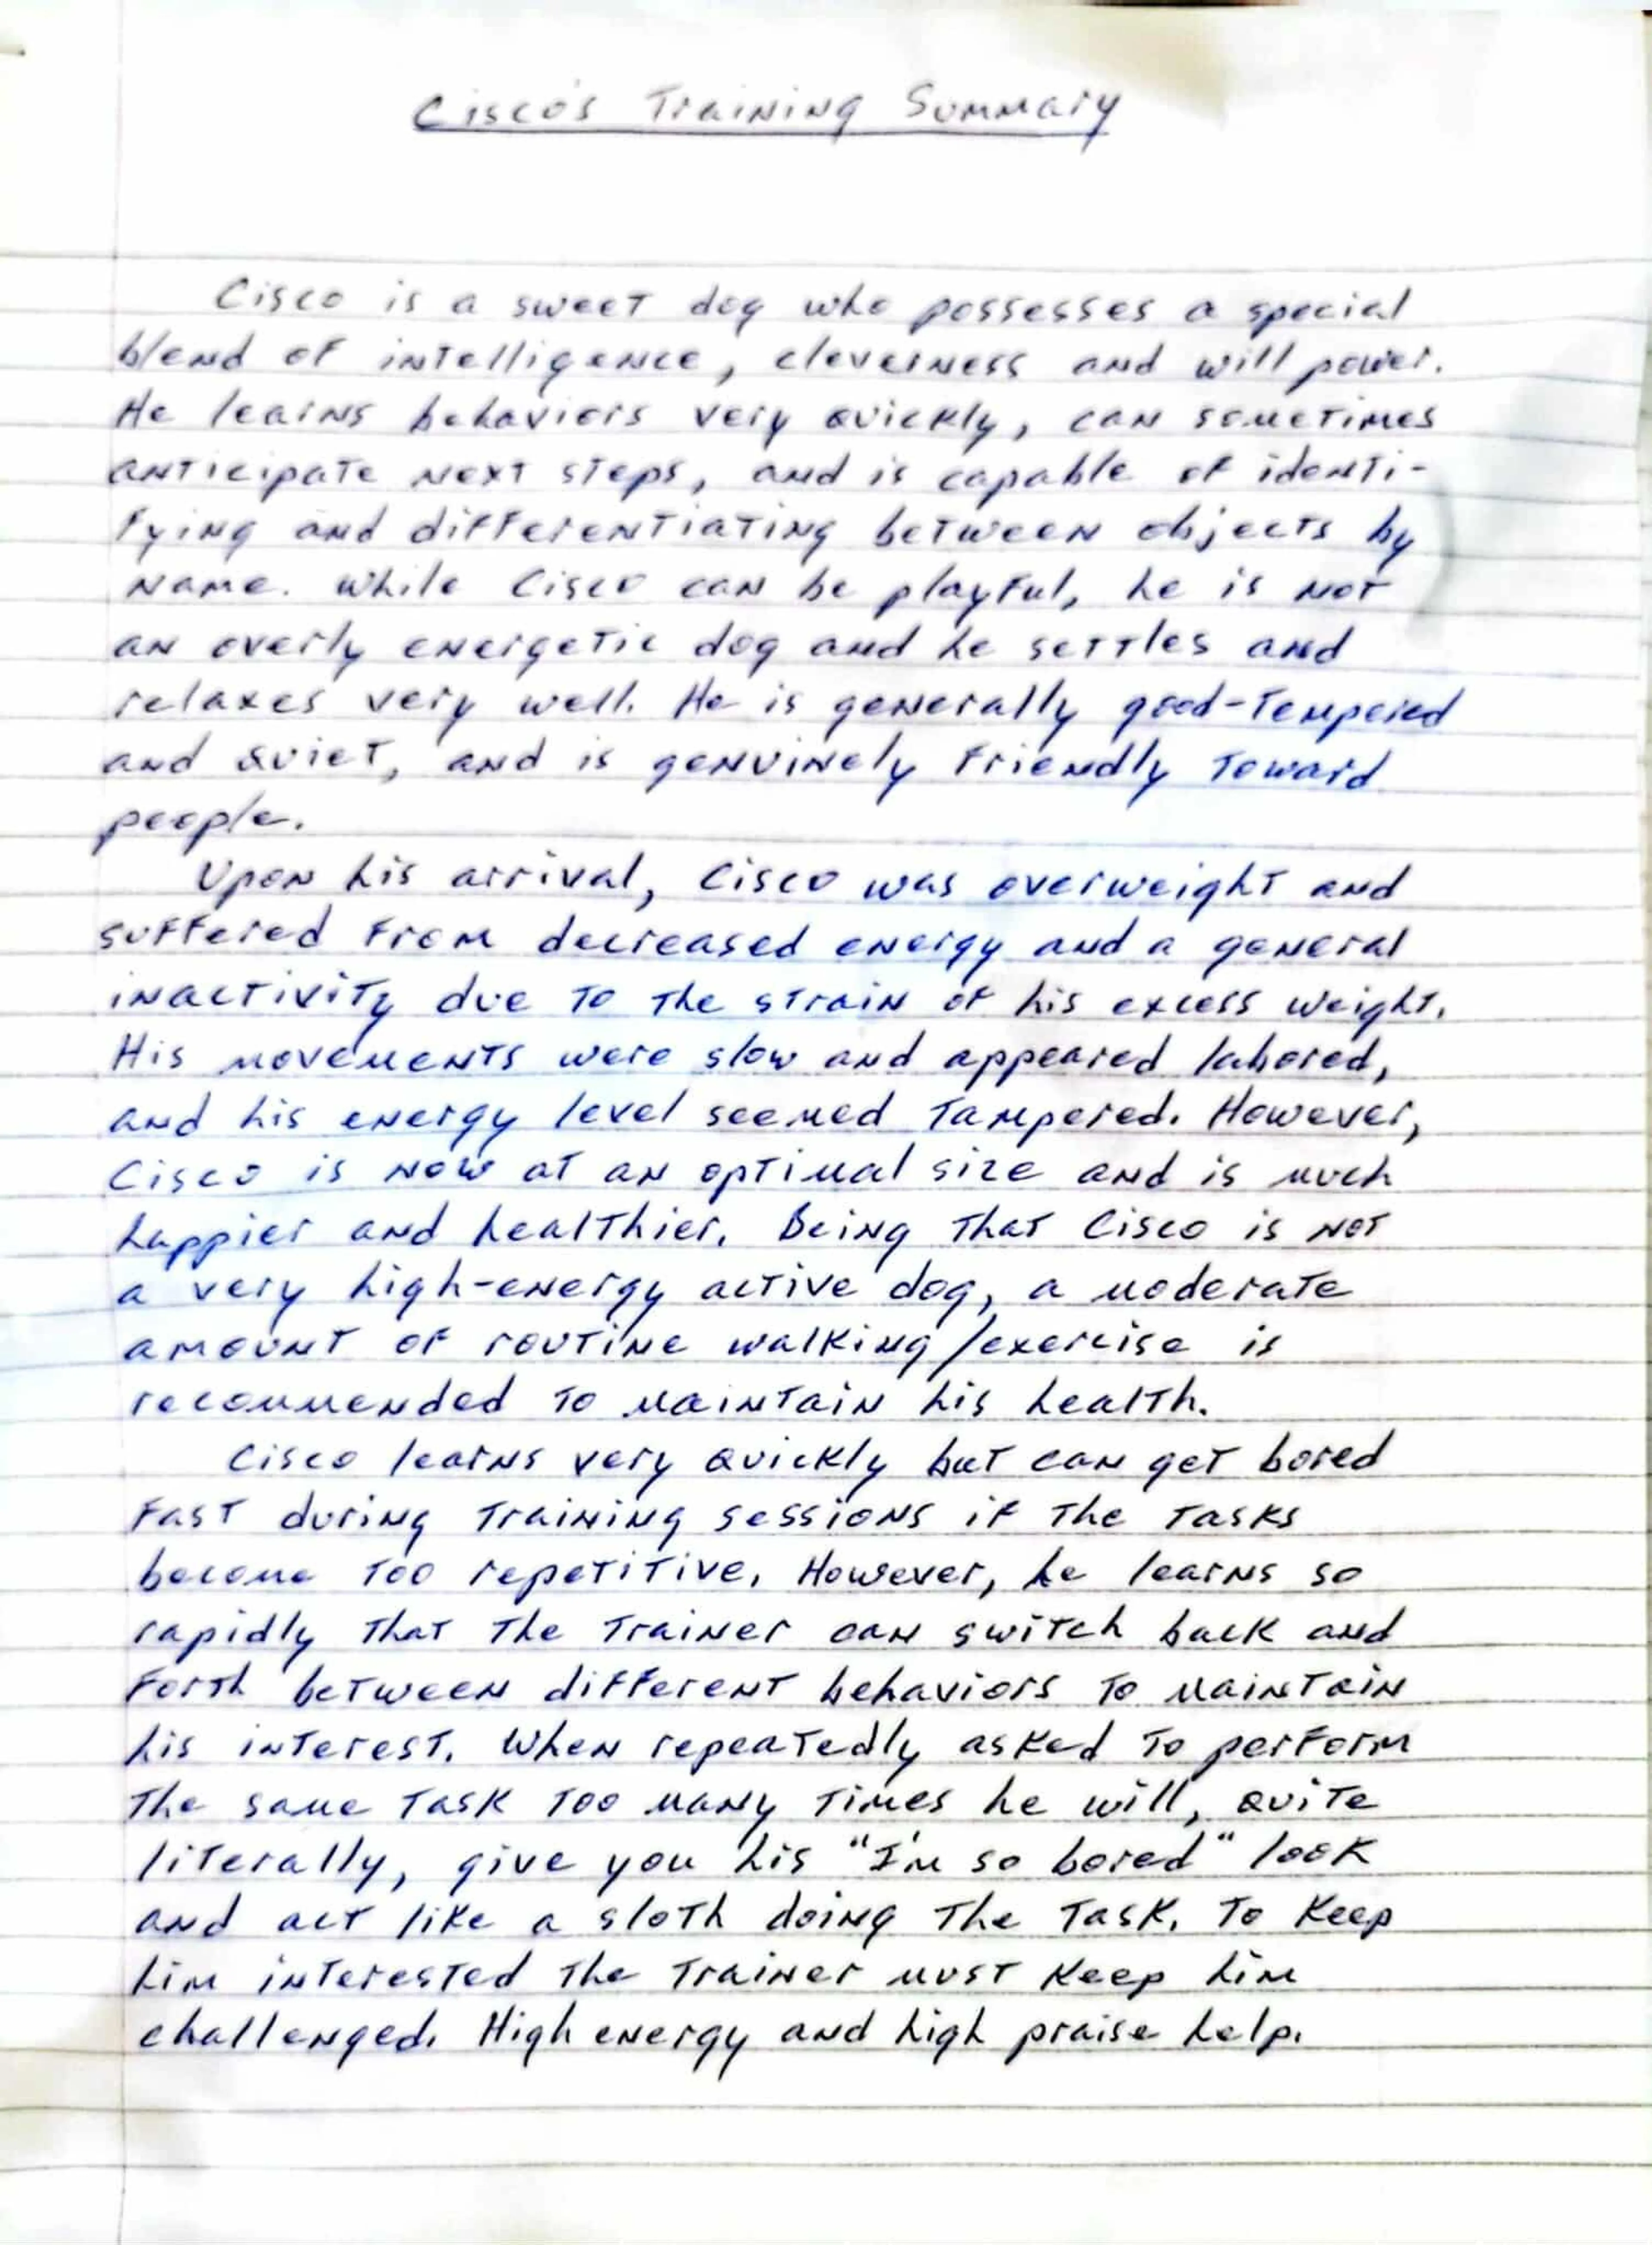 Cisco's Training Summary
Cisco is a sweet dog who possesses a special
blend of intelligence, cleverness and will power.
He learns behaviors very quickly, can sometimes
anticipate next steps, and is capable of identi-
fying and differentiating between objects by
name. While Cisco can be playful, he is not
an overly energetic dog and he settles and
relaxes very well. He is generally good-tempered
and quiet, and is genuinely friendly toward
people.
Upon his arrival, Cisco was overweight and
suffered from decreased energy and a general
inactivity due to the strain of his excess weight.
His movements were slow and appeared labored,
and his energy level seemed tampered. However,
Cisco is now at an optimal size and is much
happier and healthier. Being that Cisco is not
a very high-energy active dog, a moderate
amount of routine walking/exercise is
recommended to maintain his health.
Cisco learns very quickly but can get bored
fast during training sessions if the tasks
become too repetitive. However, he learns so
rapidly that the trainer can switch back and
forth between different behaviors to maintain
his interest. When repeatedly asked to perform
the same task too many times he will, quite
literally, give you his "I'm so bored" look
and act like a sloth doing the task. To keep
him interested the trainer must keep him
challenged. High energy and high praise help.